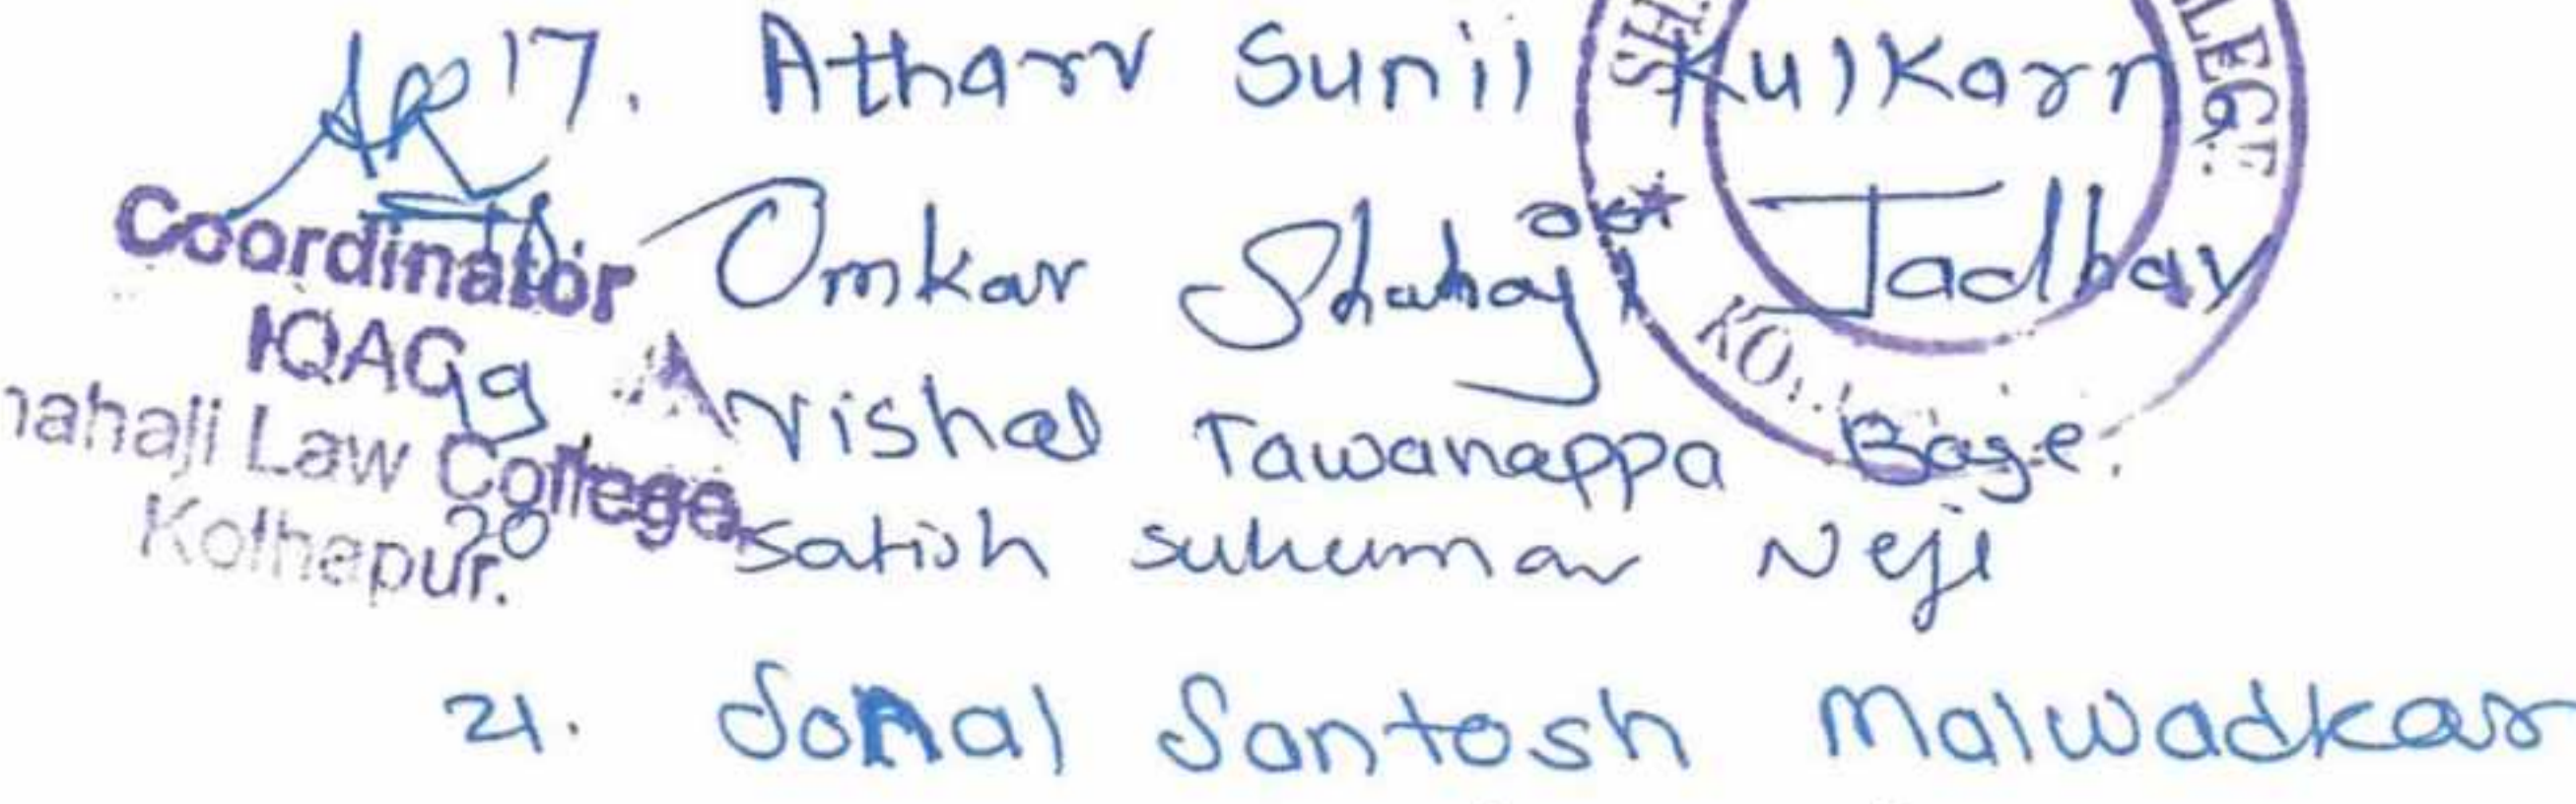 17. Atharv Sunil Kulkarn
18 Omkar Shahaji Jadhav
19 Vishal Tawanappa Boge.
20 Satish Sukumar Neji
21. Sonal Santosh Malwadkar
Coordinator
IQAC
hahaji Law College,
Kolhapur.
LEGE
KO